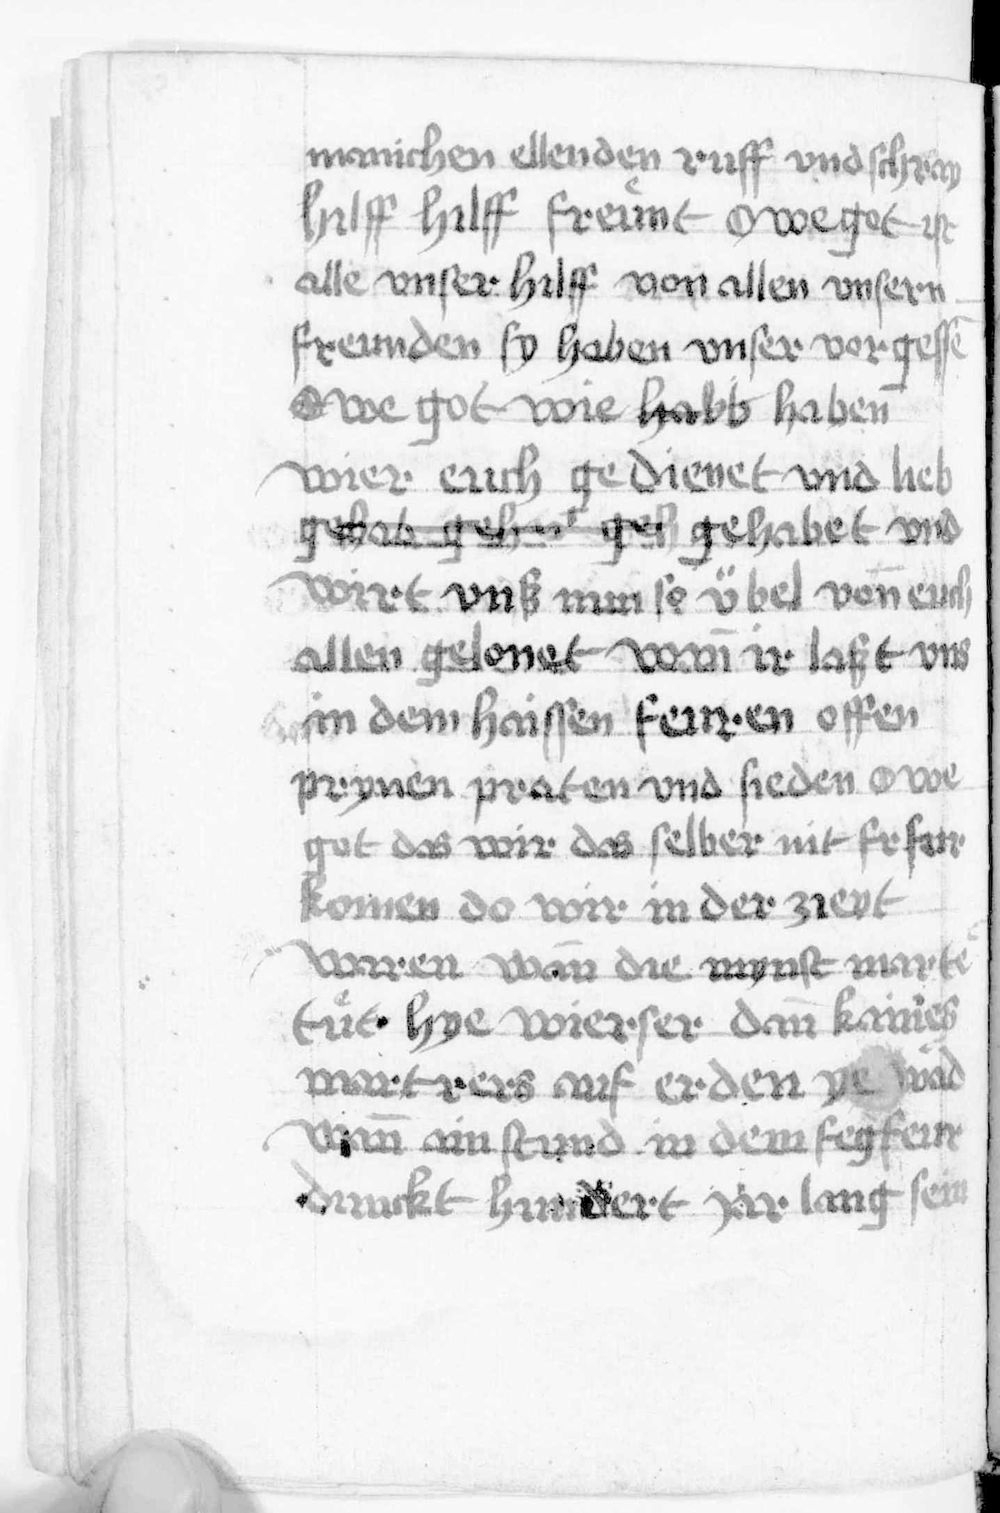 manichen ellenden ruff vnd schray
hilff hilff freůnt O we got ist
alle vnser hilff von allen vnsern
freunden sy haben vnser vorgessē
O we got wie habb haben̄
wier euch gedienet vnd lieb
gehab geh geh gehabet vnd
wirt vnß nun so ӱbel von̄ euch
allen gelonet wan̄ ir laßt vns
in dem haissen feur.en offen
prynen praten vnd sieden O we
got das wir das selber nit fr fur
komen do wir in der zieyt
waren wan̄ die mynst martē
tůt hye wierser dan̄ kaines
martrers auf erden ye wād
wan̄ ain stund in dem fegfeur
dunckt hundert jar lang sein